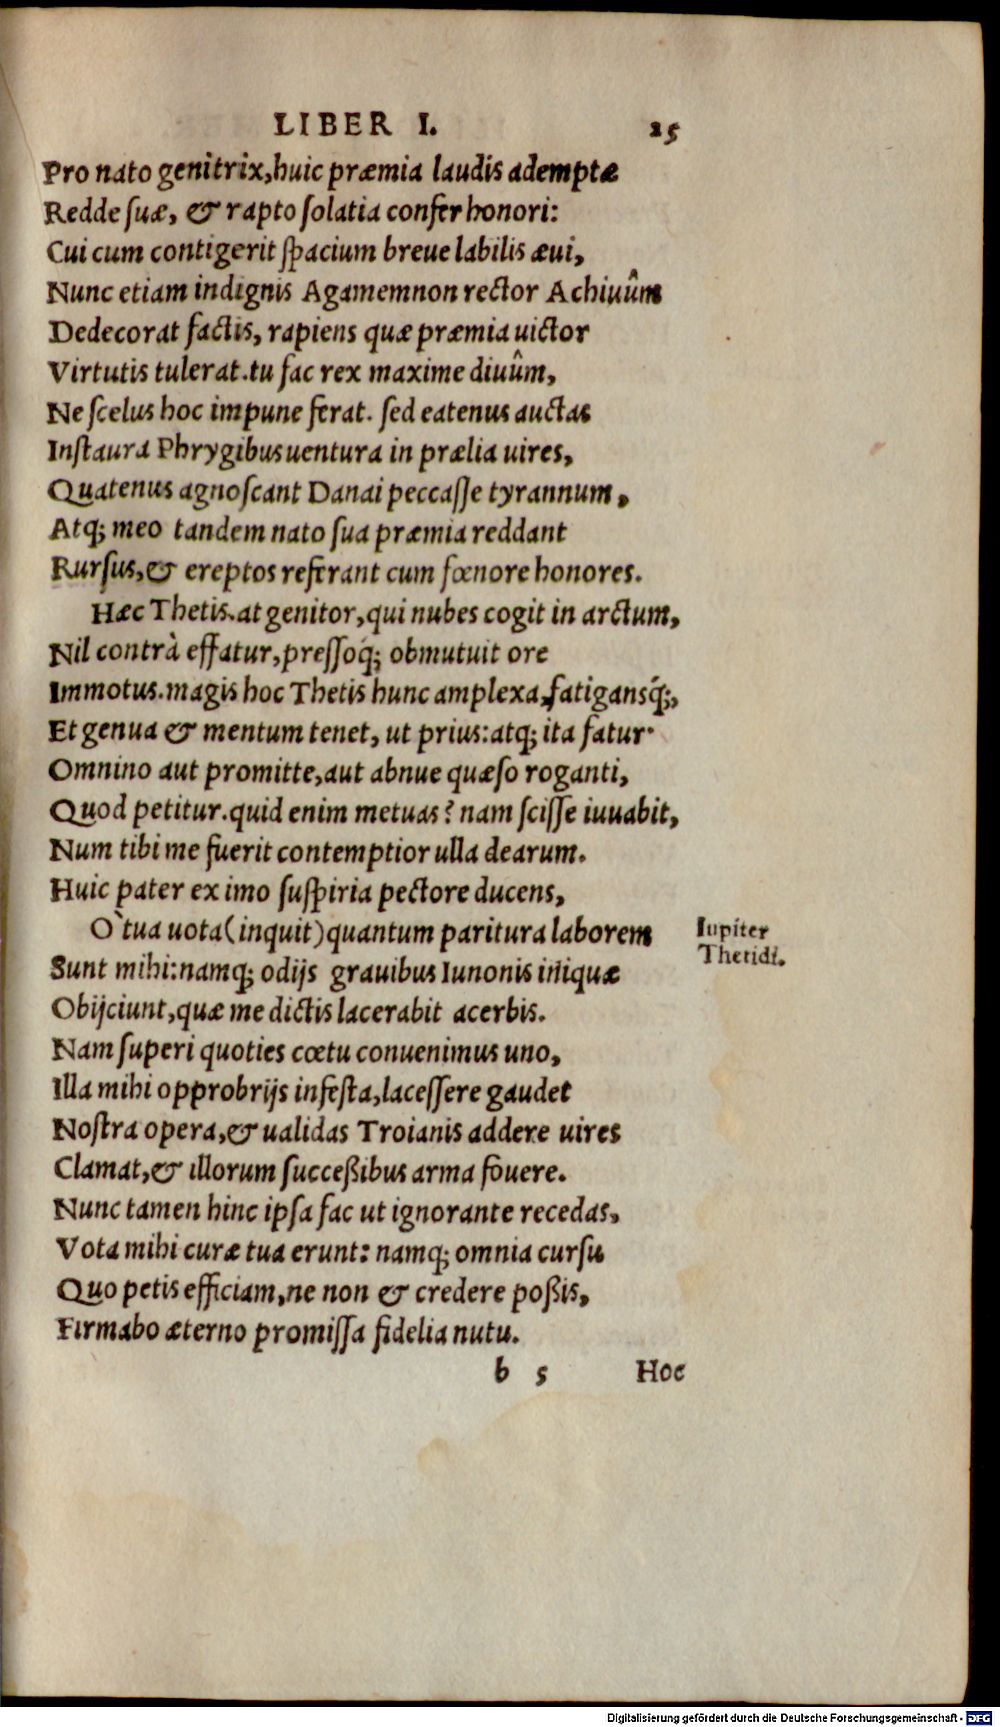 LIBER I. 25
Pro nato genitrix, huic præmia laudis ademptæ
Redde ſuæ, & rapto ſolatia confer honori:
Cui cum contigerit ſpacium breue labilis æui,
Nunc etiam indignis Agamemnon rector Achiuûm
Dedecorat factis, rapiens quæ præmia uictor
Virtutis tulerat. tu fac rex maxime diuûm,
Ne ſcelus hoc impune ferat. ſed eatenus auctas
Inſtaura Phrygibus uentura in prælia uires,
Quatenus agnoſcant Danai peccaſſe tyrannum,
Atq; meo tandem nato ſua præmia reddant
Rurſus, & ereptos referant cum fœnore honores.
Hæc Thetis. at genitor, qui nubes cogit in arctum,
Nil contrà effatur, preſſoq́; obmutuit ore
Immotus. magis hoc Thetis hunc amplexa, fatigansq́;,
Et genua & mentum tenet, ut prius: atq; ita fatur·
Omnino aut promitte, aut abnue quæſo roganti,
Quod petitur. quid enim metuas? nam ſciſſe iuuabit,
Num tibi me fuerit contemptior ulla dearum.
Huic pater ex imo ſuſpiria pectore ducens,
O` tua uota (inquit) quantum paritura laborem
Iupiter
Thetidi.
Sunt mihi: namq; odijs grauibus Iunonis iniquæ
Obijciunt, quæ me dictis lacerabit acerbis.
Nam ſuperi quoties cœtu conuenimus uno,
Illa mihi opprobrijs infeſta, laceſſere gaudet
Noſtra opera, & ualidas Troianis addere uires
Clamat, & illorum ſucceßibus arma fouere.
Nunc tamen hinc ipſa fac ut ignorante recedas,
Vota mihi curæ tua erunt: namq; omnia curſu
Quo petis efficiam, ne non & credere poßis,
Firmabo æterno promiſſa fidelia nutu.
b 5 Hoc
Digitalisierung gefördert durch die Deutsche Forschungsgemeinschaft - DFG